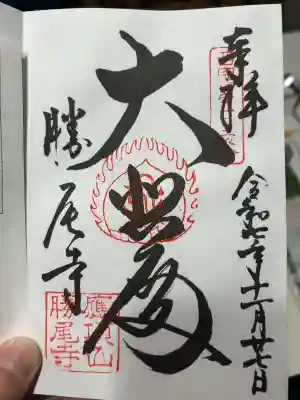 奉拝
令和七年十一月廿七日
大悲殿
勝尾寺
應頂山
勝尾寺